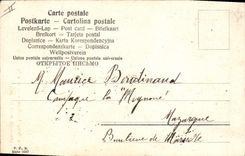 Carte postale
Postkarte - Cartolina postale
Levelező-Lap - Post card - Briefkaart
Brefkort - Tarjeta postal
Dopisnice - Karta Korespondencyjna
Correspondenzkarte - Dopisnica
Weltpostverein
Union postale universelle
ОТКРЫТОЕ ПИСЬМО
M. Maurice
Campagne la "Mignone"
à
Mazargue
Banlieue de Marseille